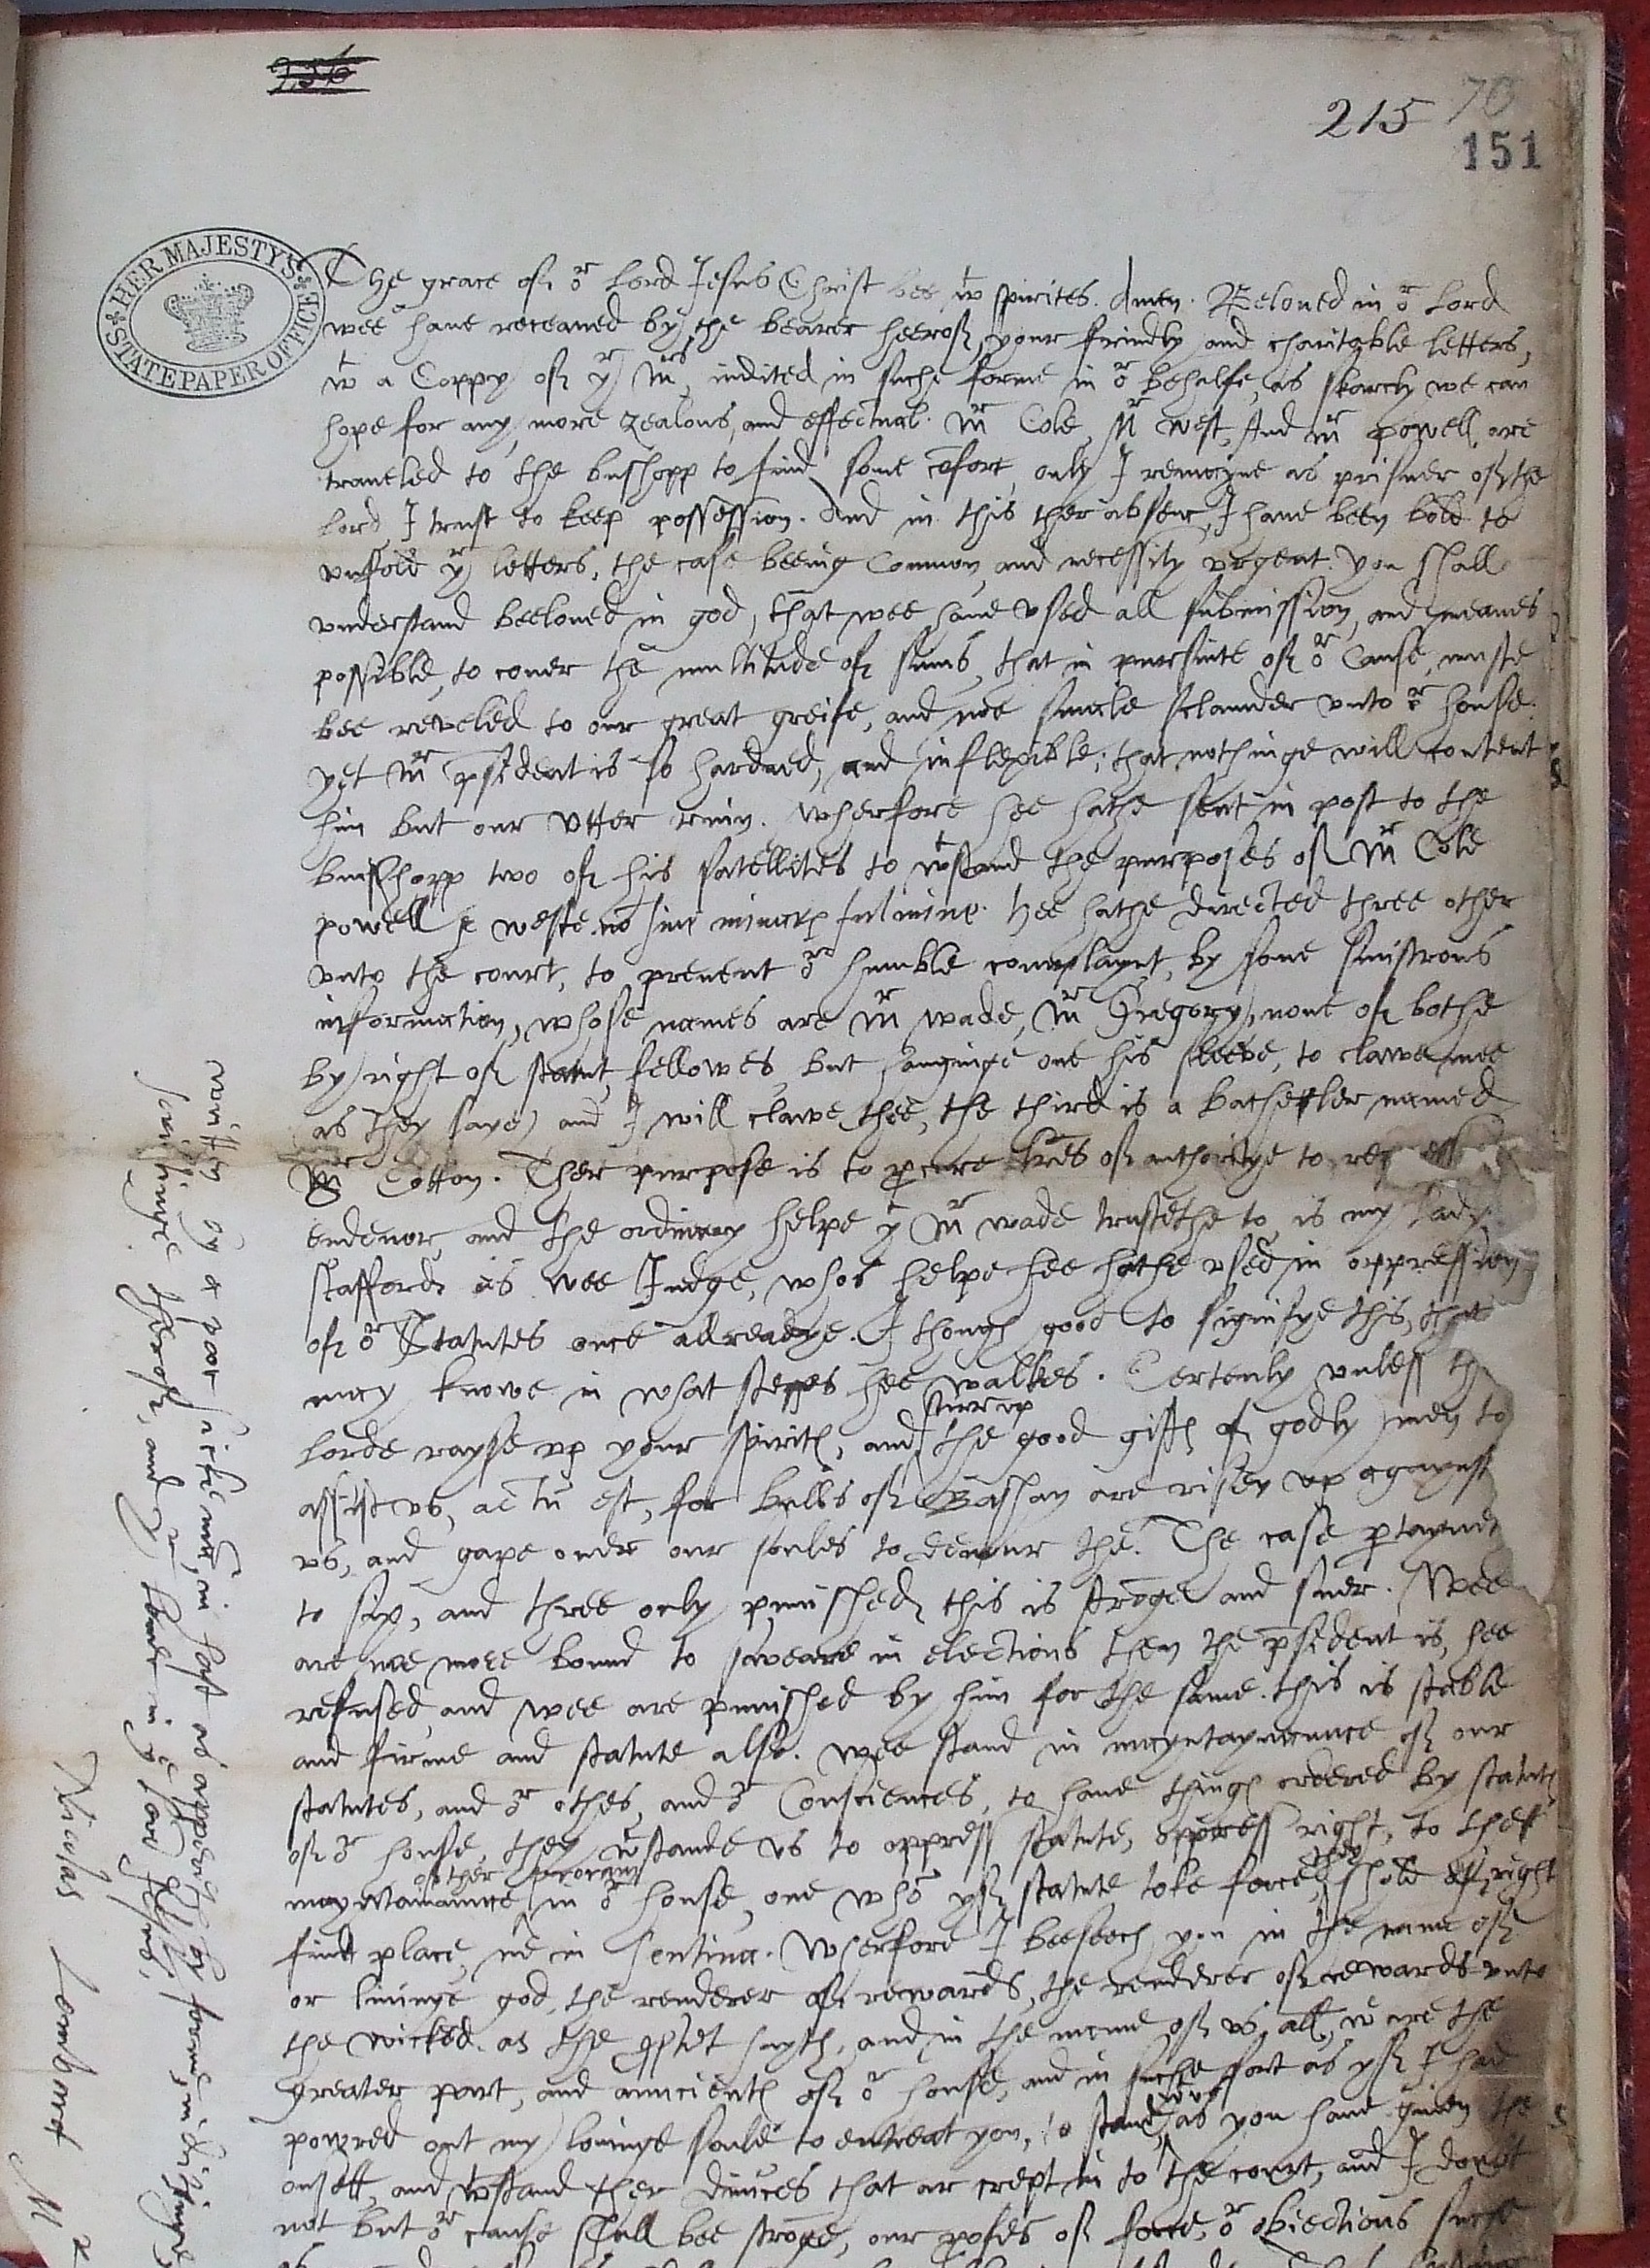 215 70
151
HER MAJESTY'S
STATE PAPER OFFICE
The grace of or Lord Jesus Christ bee wt spirites. Amen. Beloved in or Lord
wee have receaved by the bearer heerof, your frindly and charitable letters,
wt a Coppy of yr Mrs, indited in suche forme in or behalfe, as skarcly we can
hope for any more zealous, and effectual. Mr Cole, Mr West, And Mr powell, are
traveled to the busshopp to find some cōfort, only I remayne as prisner of the
lord, I trust to keep possession. And in this ther absenc, I have been bold to
unfold yr letters, the case beeing Common, and necessity urgent. You shall
understand beeloved in god, that wee have used all submission, and meanes
possible, to cover the multitude of sinns, that in pursuite of or Cause, muste
bee reveled to our great greife, and noe smale sclaunder unto or house.
yet Mr psident is so hardned, and inflexible, that nothinge will content
him but our utter ruin. Wherfore hee hathe sent in post to the
busshopp two of his satellites to wtstand the purposes of Mr Cole
powell & weste. nō sine fulmine. Hee hathe directed three other
unto the court, to prevent or humble complaynt, by some sinistrous
information, whose names are Mr wade, Mr Gregory, none of bothe
by right of statut fellowes, but hanginge one his sleeve, to clawe mee
as they saye) and I will clawe thee, the third is a Bachettler named
Mr Cotton. Ther purpose is to pcure lres of authoritye to
endevor, and the ordinary helpe yt Mr wade trustethe to, is my Lady
Stafford, as wee Judge, whos helpe hee hathe used in oppression
of or Statutes once allreadye. I though good to signifye this, that
may knowe in what stepps hee walkes. Certenly unless th
Lorde rayse up your spirits, and stirr up the good gifts of godly men to
assist us, actū est, for bulls of Bashan are risen up agaynst
us, and gape over our soules to devour thē. The case ptaynet
to six, and three only punished, this is strōge and suer. Wee
are noe more bound to sweare in elections then the psident is, hee
refused, and wee are punished by him for the same. this is stable
and firme and statute also. Wee stand in mayntaynaunce of our
statutes, and or othes, and or Consciences, to have things ordered by statuts
of or house, they wtstande us to oppress statute, oppress right, to theft
mayntainaunce of ther in or house, one who yf statute toke force, they shold of right
find place, ne in sentina. Wherfore I beeseech you in the name of
or livinge god, the renderer of rewards, the renderer of rewards unto
the wicked. as the pphet sayth, and in the name of us all, wc are the
greater part, and auncients of or house, and in suche sort as yf I had
powred out my lovinge soule to entreat you, to stand, as you have given the
onsett, and wtstand ther divices that ar crept in to the court, and I doubt
not but or cause shall bee strōge, our profes of force, or obiections such
writtin by a poor sicke man, in hast as appeareth by forme, in
hereof, and yr Lord Jesus.
Nicolas Lombard